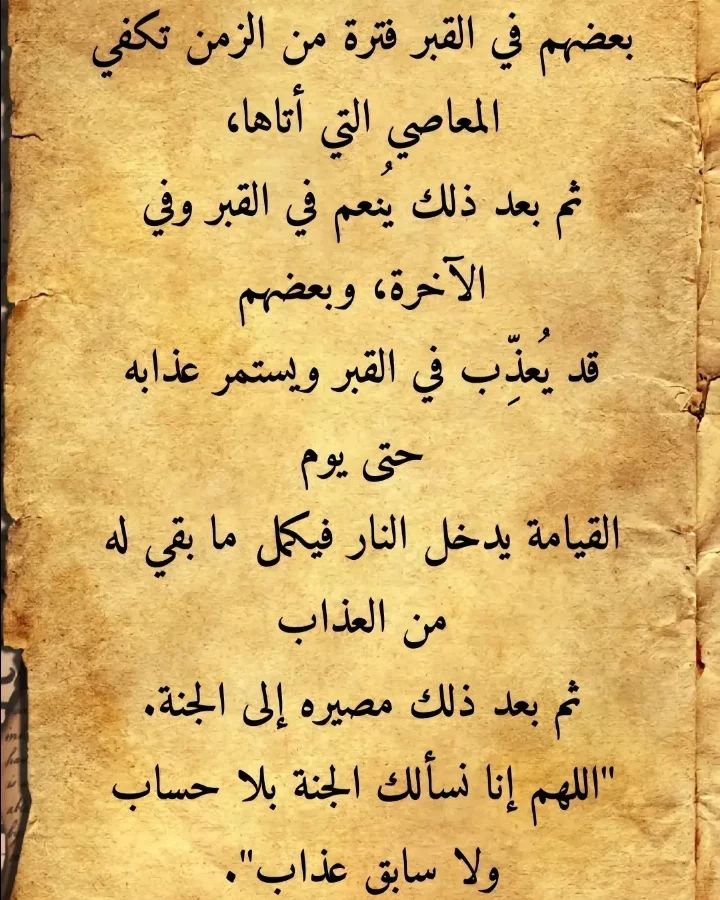 بعضهم في القبر فترة من الزمن تكفي
المعاصي التي أتاها،
ثم بعد ذلك يُنعم في القبر وفي
الآخرة، وبعضهم
قد يُعذِّب في القبر ويستمر عذابه
حتى يوم
القيامة يدخل النار فيكمل ما بقي له
من العذاب
ثم بعد ذلك مصيره إلى الجنة.
"اللهم إنا نسألك الجنة بلا حساب
ولا سابق عذاب".